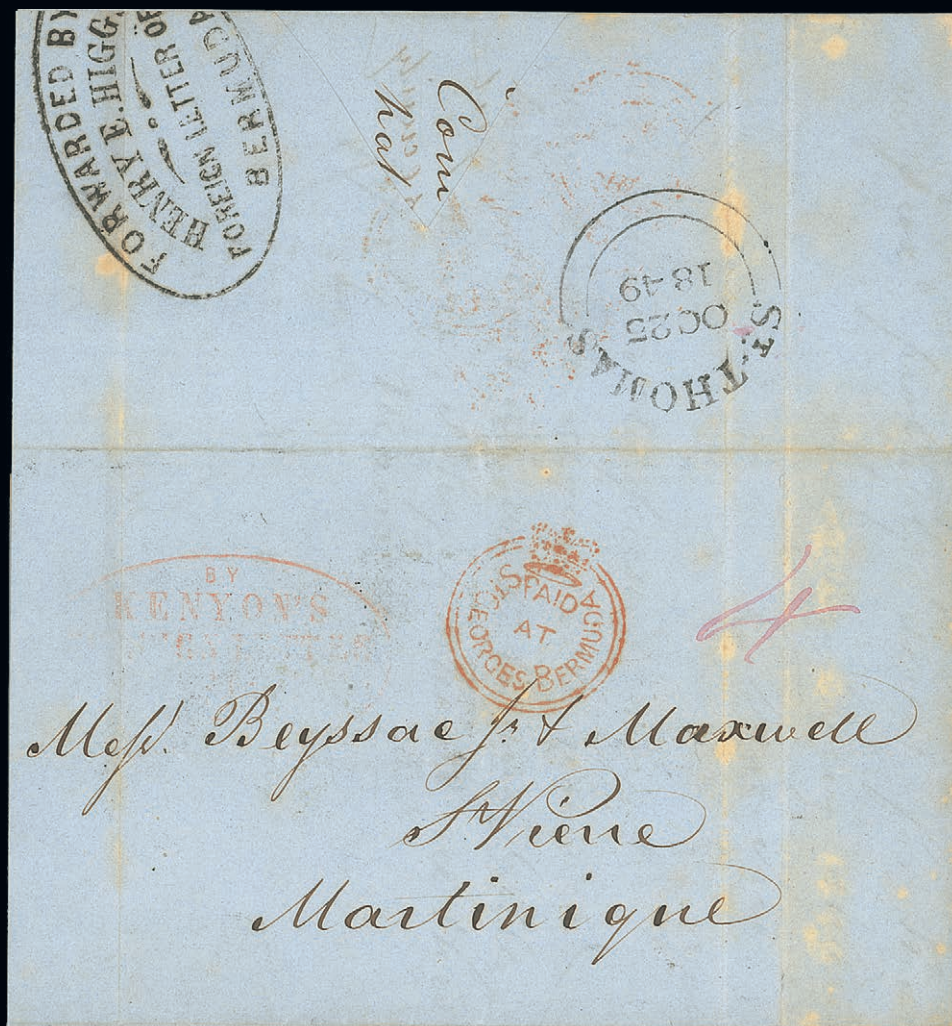 FORWARDED BY
HENRY E. HIGG
FOREIGN LETTER OF
BERMUDA
Com
ST. THOMAS
OC 25
1849
BY
KENYON'S
PAID
AT
ST GEORGES BERMUDA
4
Messrs. Beyssac Jr. & Maxwell
St Pierre
Martinique